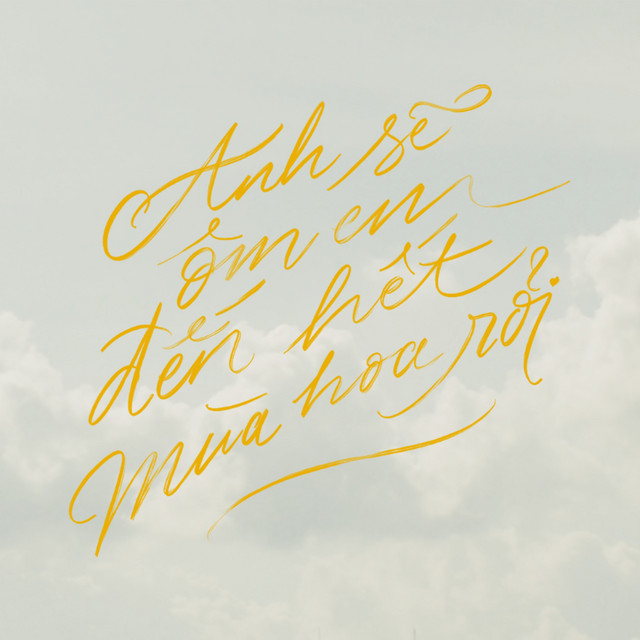 Anh sẽ
ôm em
đến hết
mùa hoa rơi